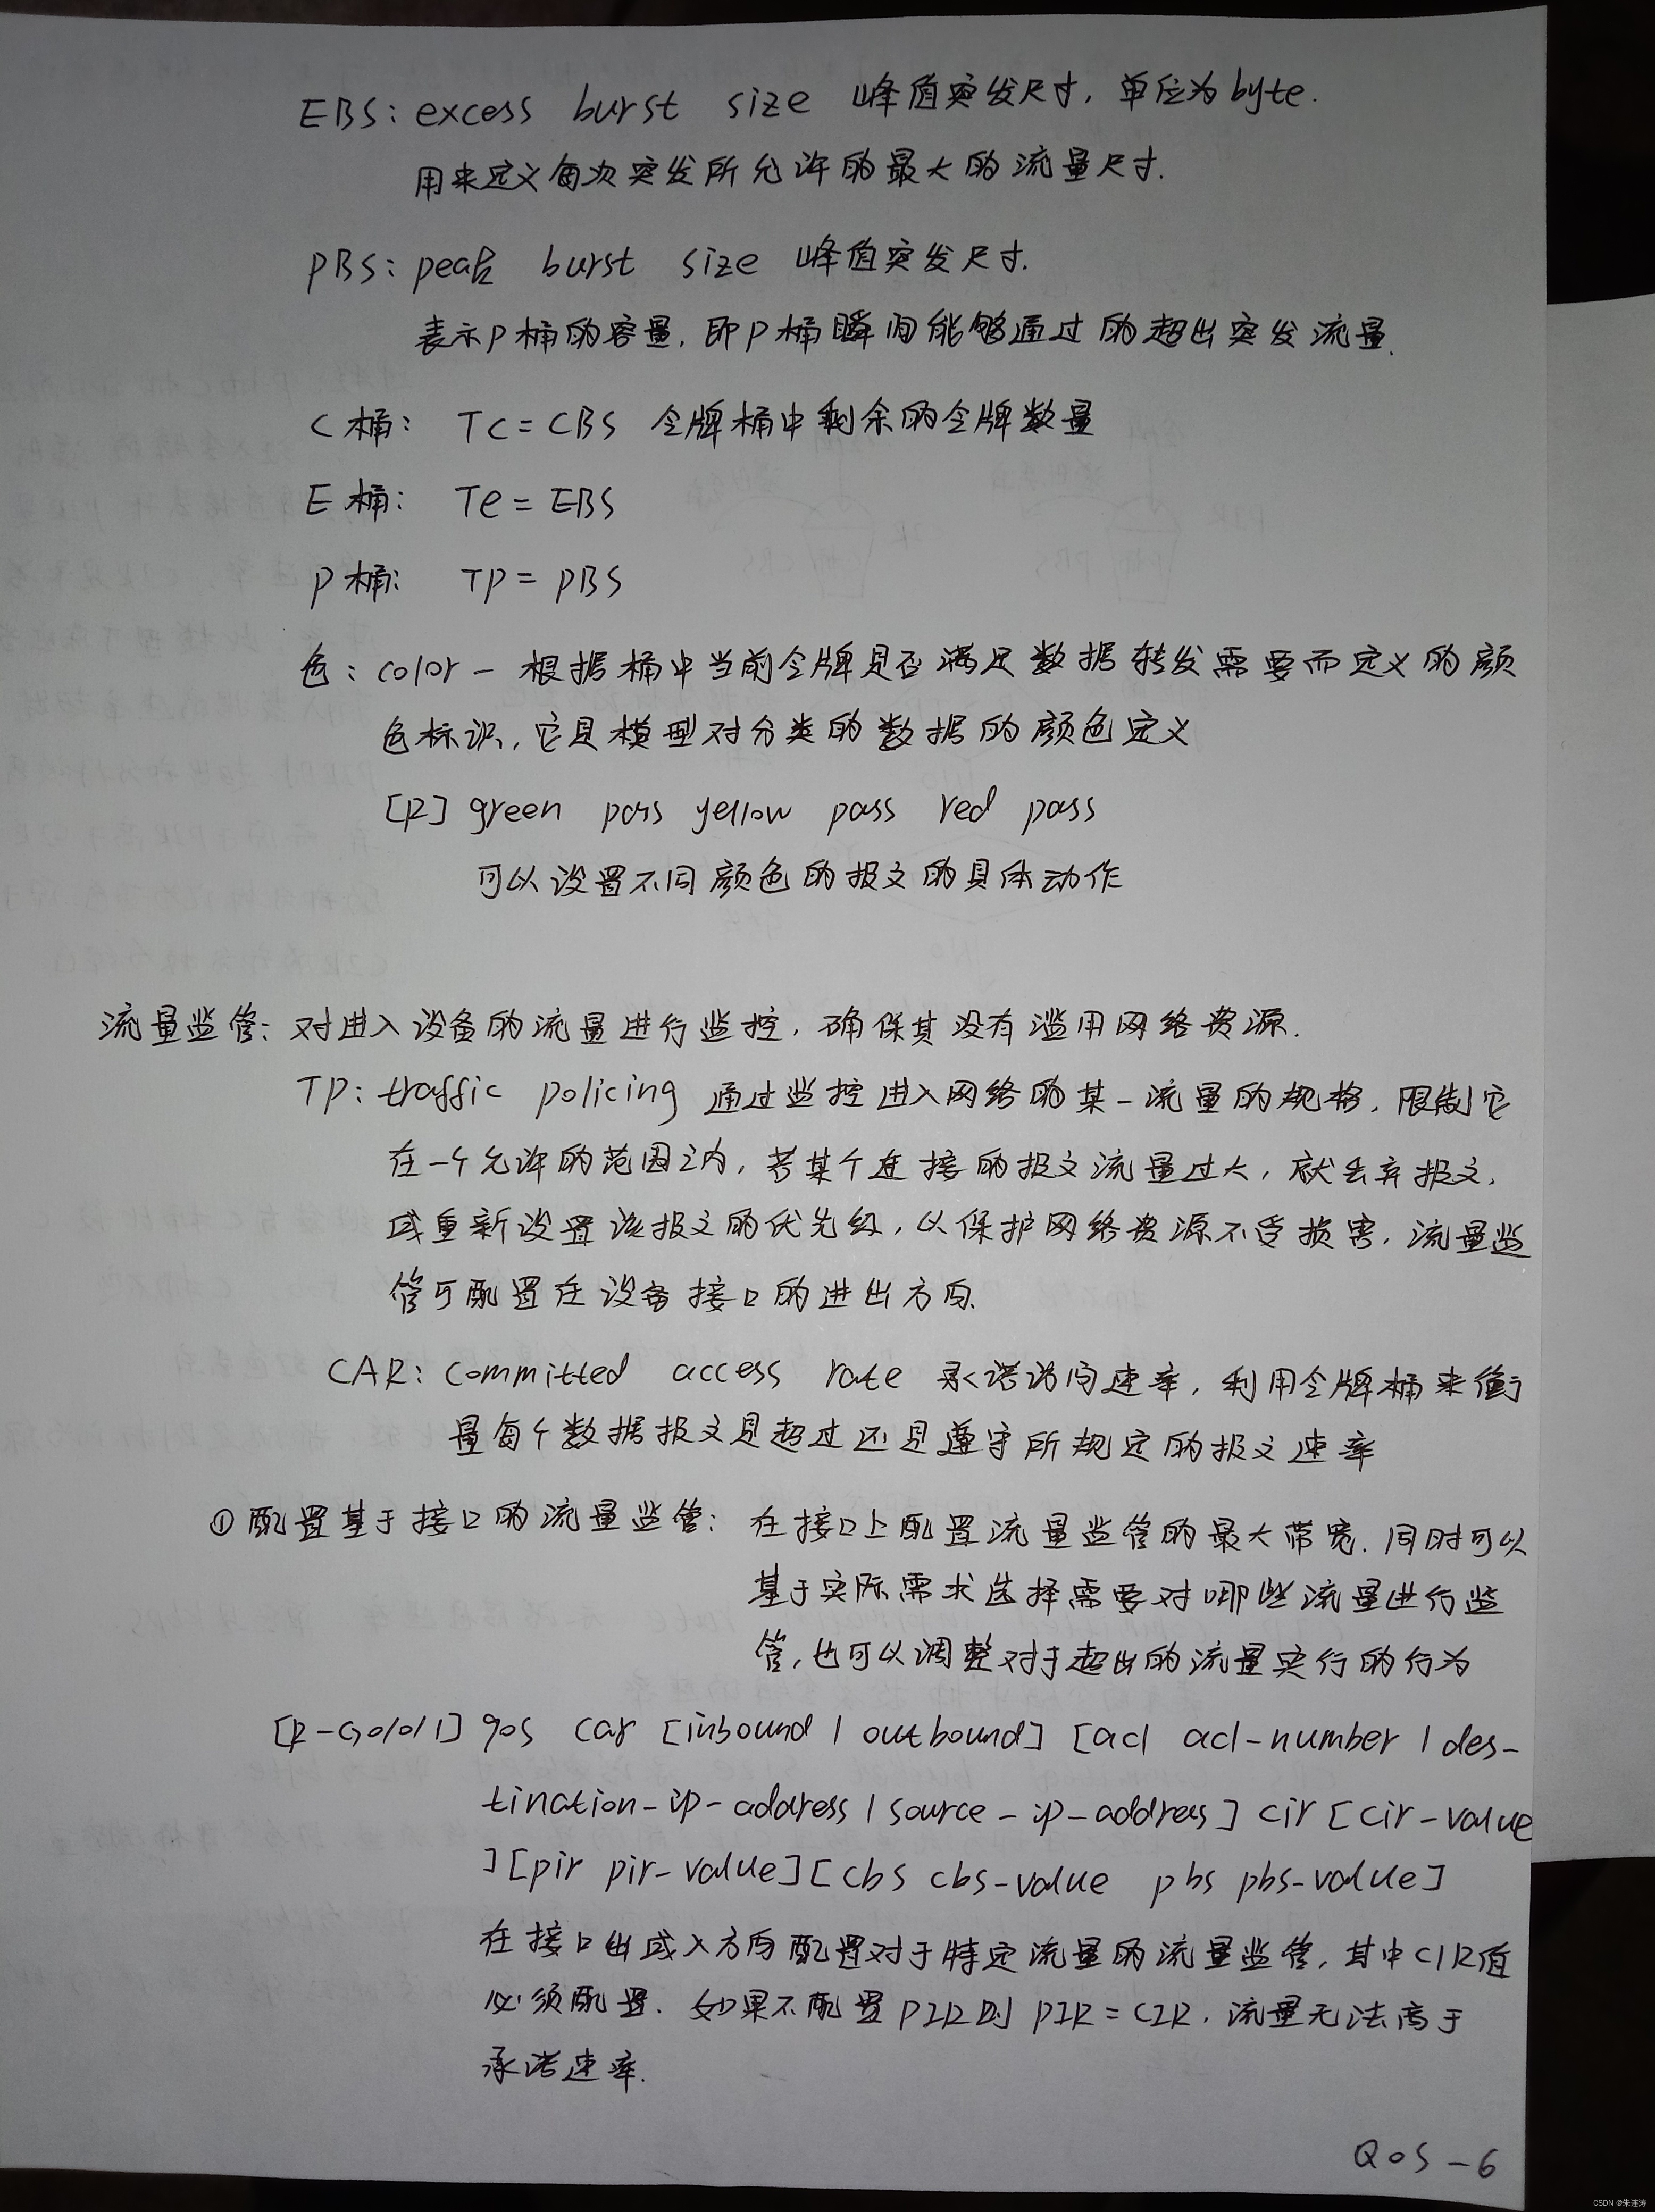 EBS: excess burst size 峰值突发尺寸, 单位为byte.
用来定义每次突发所允许的最大的流量尺寸.
PBS: peak burst size 峰值突发尺寸.
表示P桶的容量, 即P桶瞬间能够通过的超出突发流量.
C桶: Tc = CBS 令牌桶中剩余的令牌数量
E桶: Te = EBS
P桶: TP = PBS
色: color - 根据桶中当前令牌是否满足数据转发需要而定义的颜
色标识, 它是模型对分类的数据的颜色定义
[R] green pass yellow pass red pass
可以设置不同颜色的报文的具体动作
流量监管: 对进入设备的流量进行监控, 确保其没有滥用网络资源.
TP: traffic policing 通过监控进入网络的某一流量的规格, 限制它
在一个允许的范围之内, 若某个连接的报文流量过大, 就丢弃报文,
或重新设置该报文的优先级, 以保护网络资源不受损害, 流量监
管可配置在设备接口的进出方向.
CAR: committed access rate 承诺访问速率, 利用令牌桶来衡
量每个数据报文是超过还是遵守所规定的报文速率
① 配置基于接口的流量监管: 在接口上配置流量监管的最大带宽. 同时可以
基于实际需求选择需要对哪些流量进行监
管, 也可以调整对于超出的流量实行的行为
[R-G0/0/1] qos car [inbound | outbound] [acl acl-number | des-
tination-ip-address | source-ip-address] cir [cir-value
] [pir pir-value] [cbs cbs-value pbs pbs-value]
在接口出或入方向配置对于特定流量的流量监管, 其中CIR值
必须配置. 如果不配置PIR则PIR = CIR, 流量无法高于
承诺速率.
QoS - 6
CSDN @朱连涛